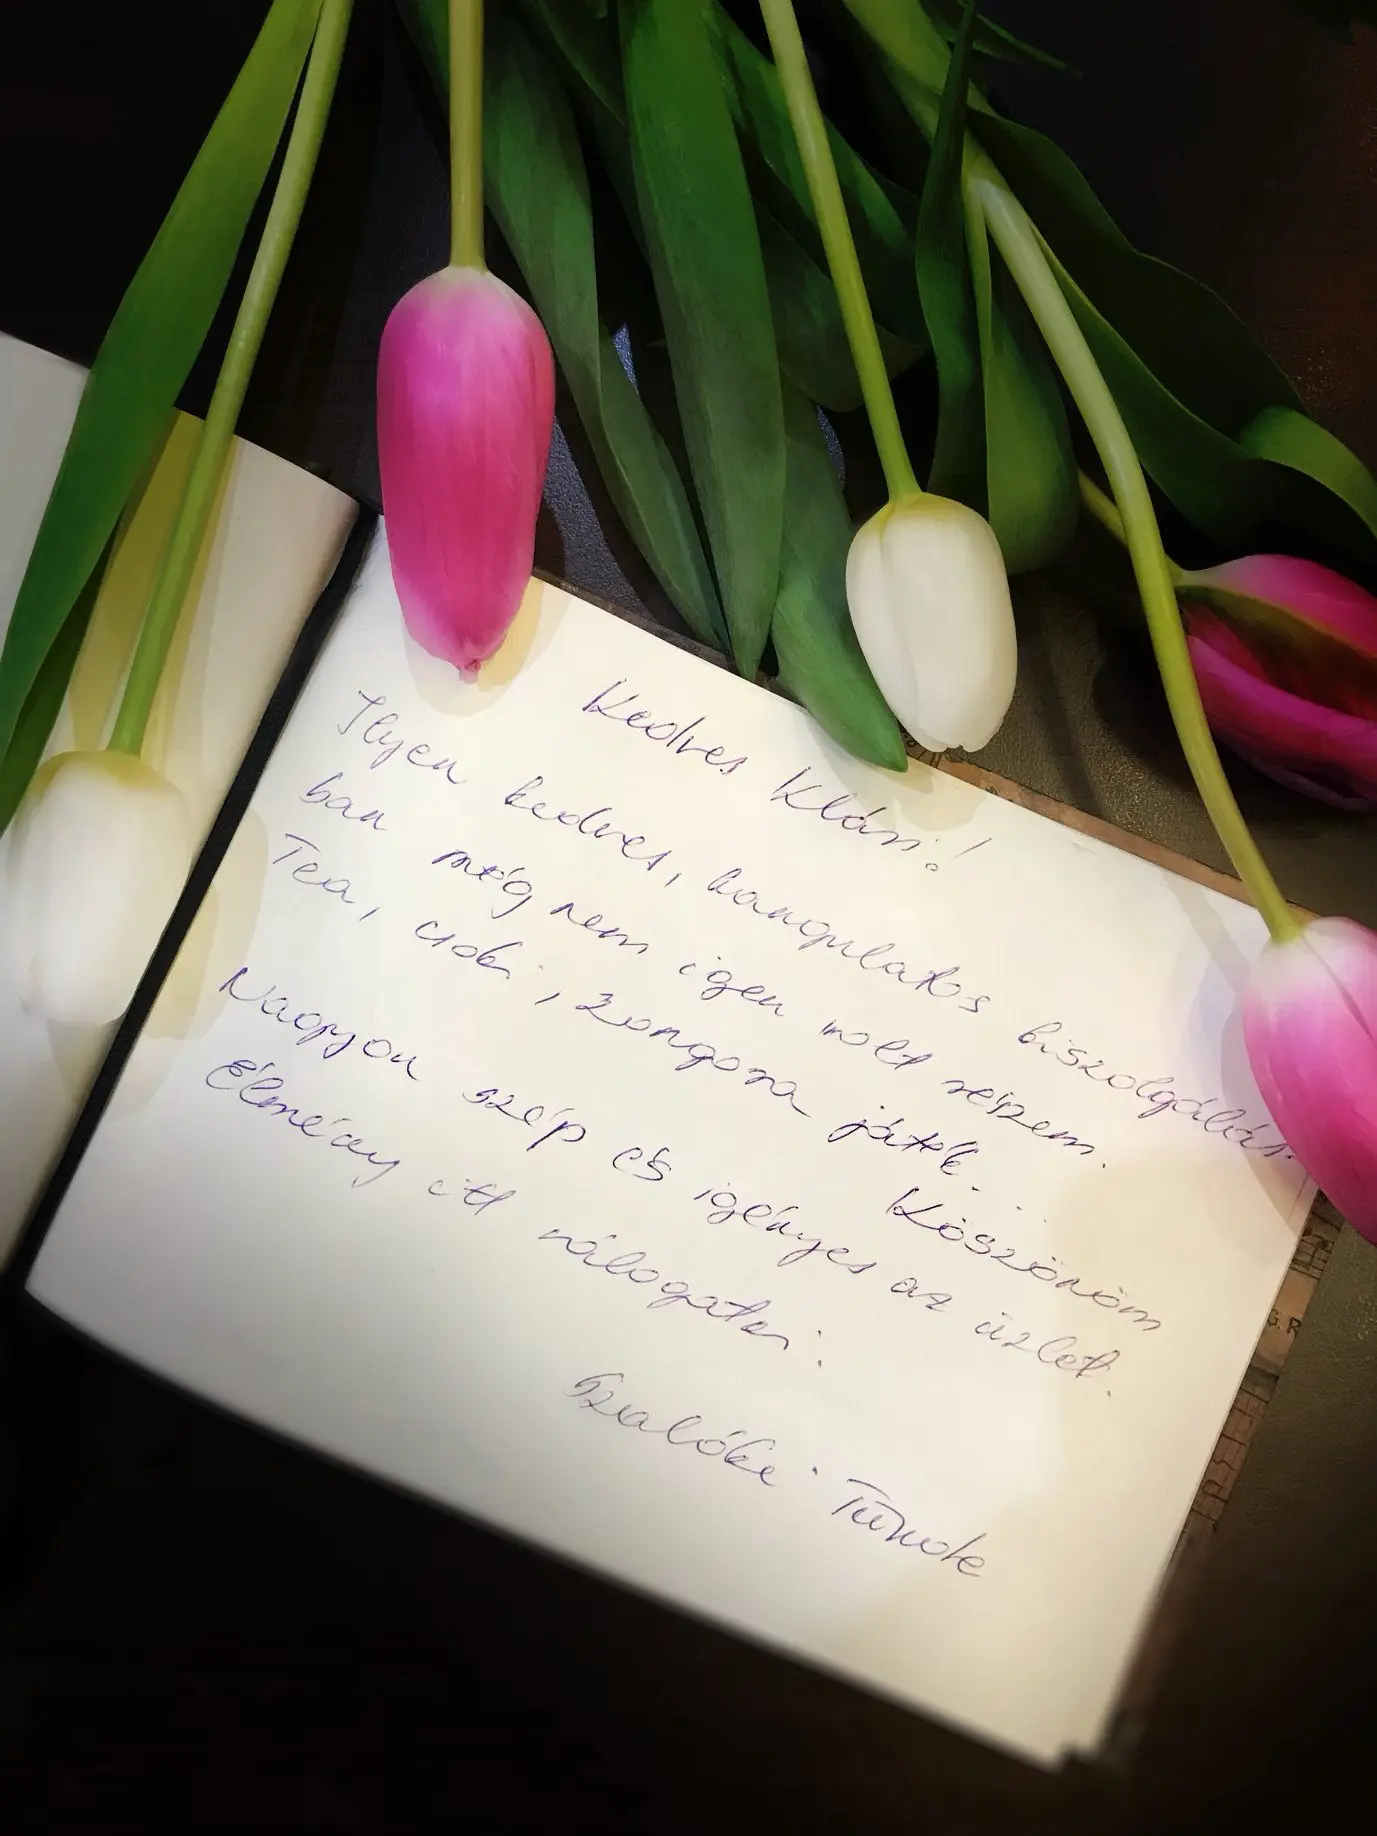 Kedves Klári!
Ilyen kedves, hangulatos kiszolgálás-
ban még nem igen volt részem.
Tea, csoki, zongora játék. Köszönöm
Nagyon szép és igényes az üzlet.
Élmény itt válogatni.
Szalóki Tünde
G.R